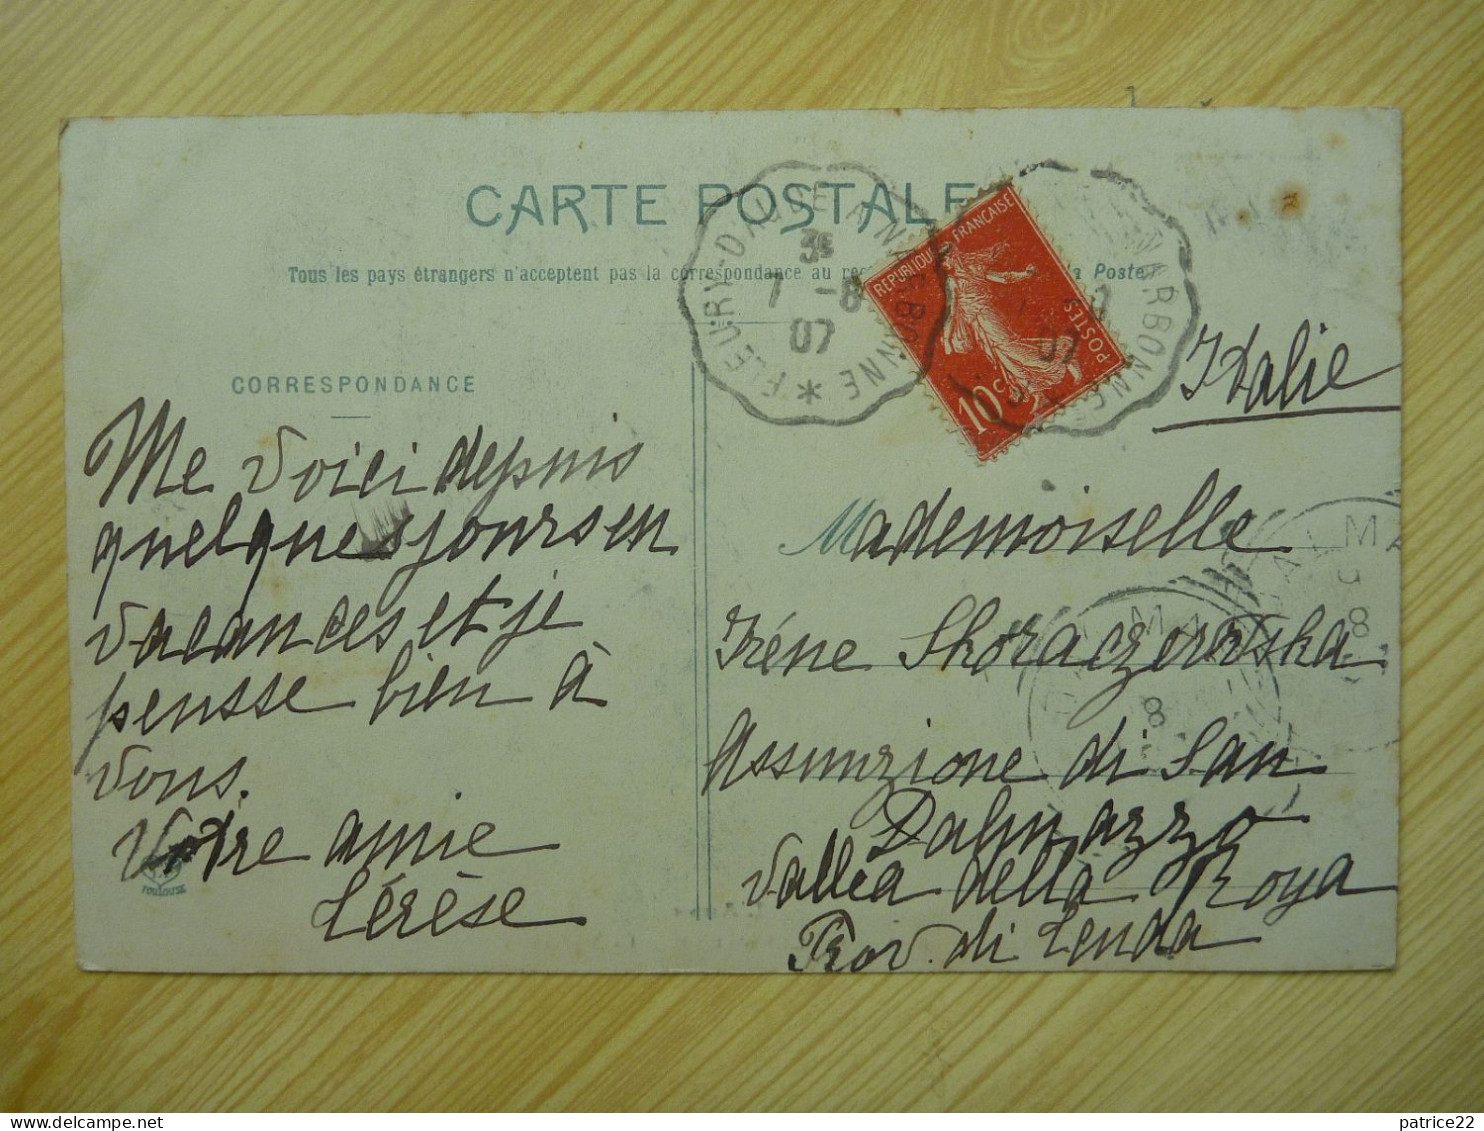 CARTE POSTALE
Tous les pays étrangers n'acceptent pas la correspondance au Poste
FLEURY-D'AUDE A NARBONNE
3E
7 -8
07
RÉPUBLIQUE FRANÇAISE
POSTES
10c
NARBONNE
07
Italie
CORRESPONDANCE
Me voici depuis
quelques jours en
vacances et je
pensse bien à
vous.
Votre amie
Térèse
TOULOUSE
Mademoiselle
Iréne Skoraczewska
Assunzione di San
Dalmazzo
Vallea della Roya
Prov. di Tenda
DALMA
8
8
patrice22